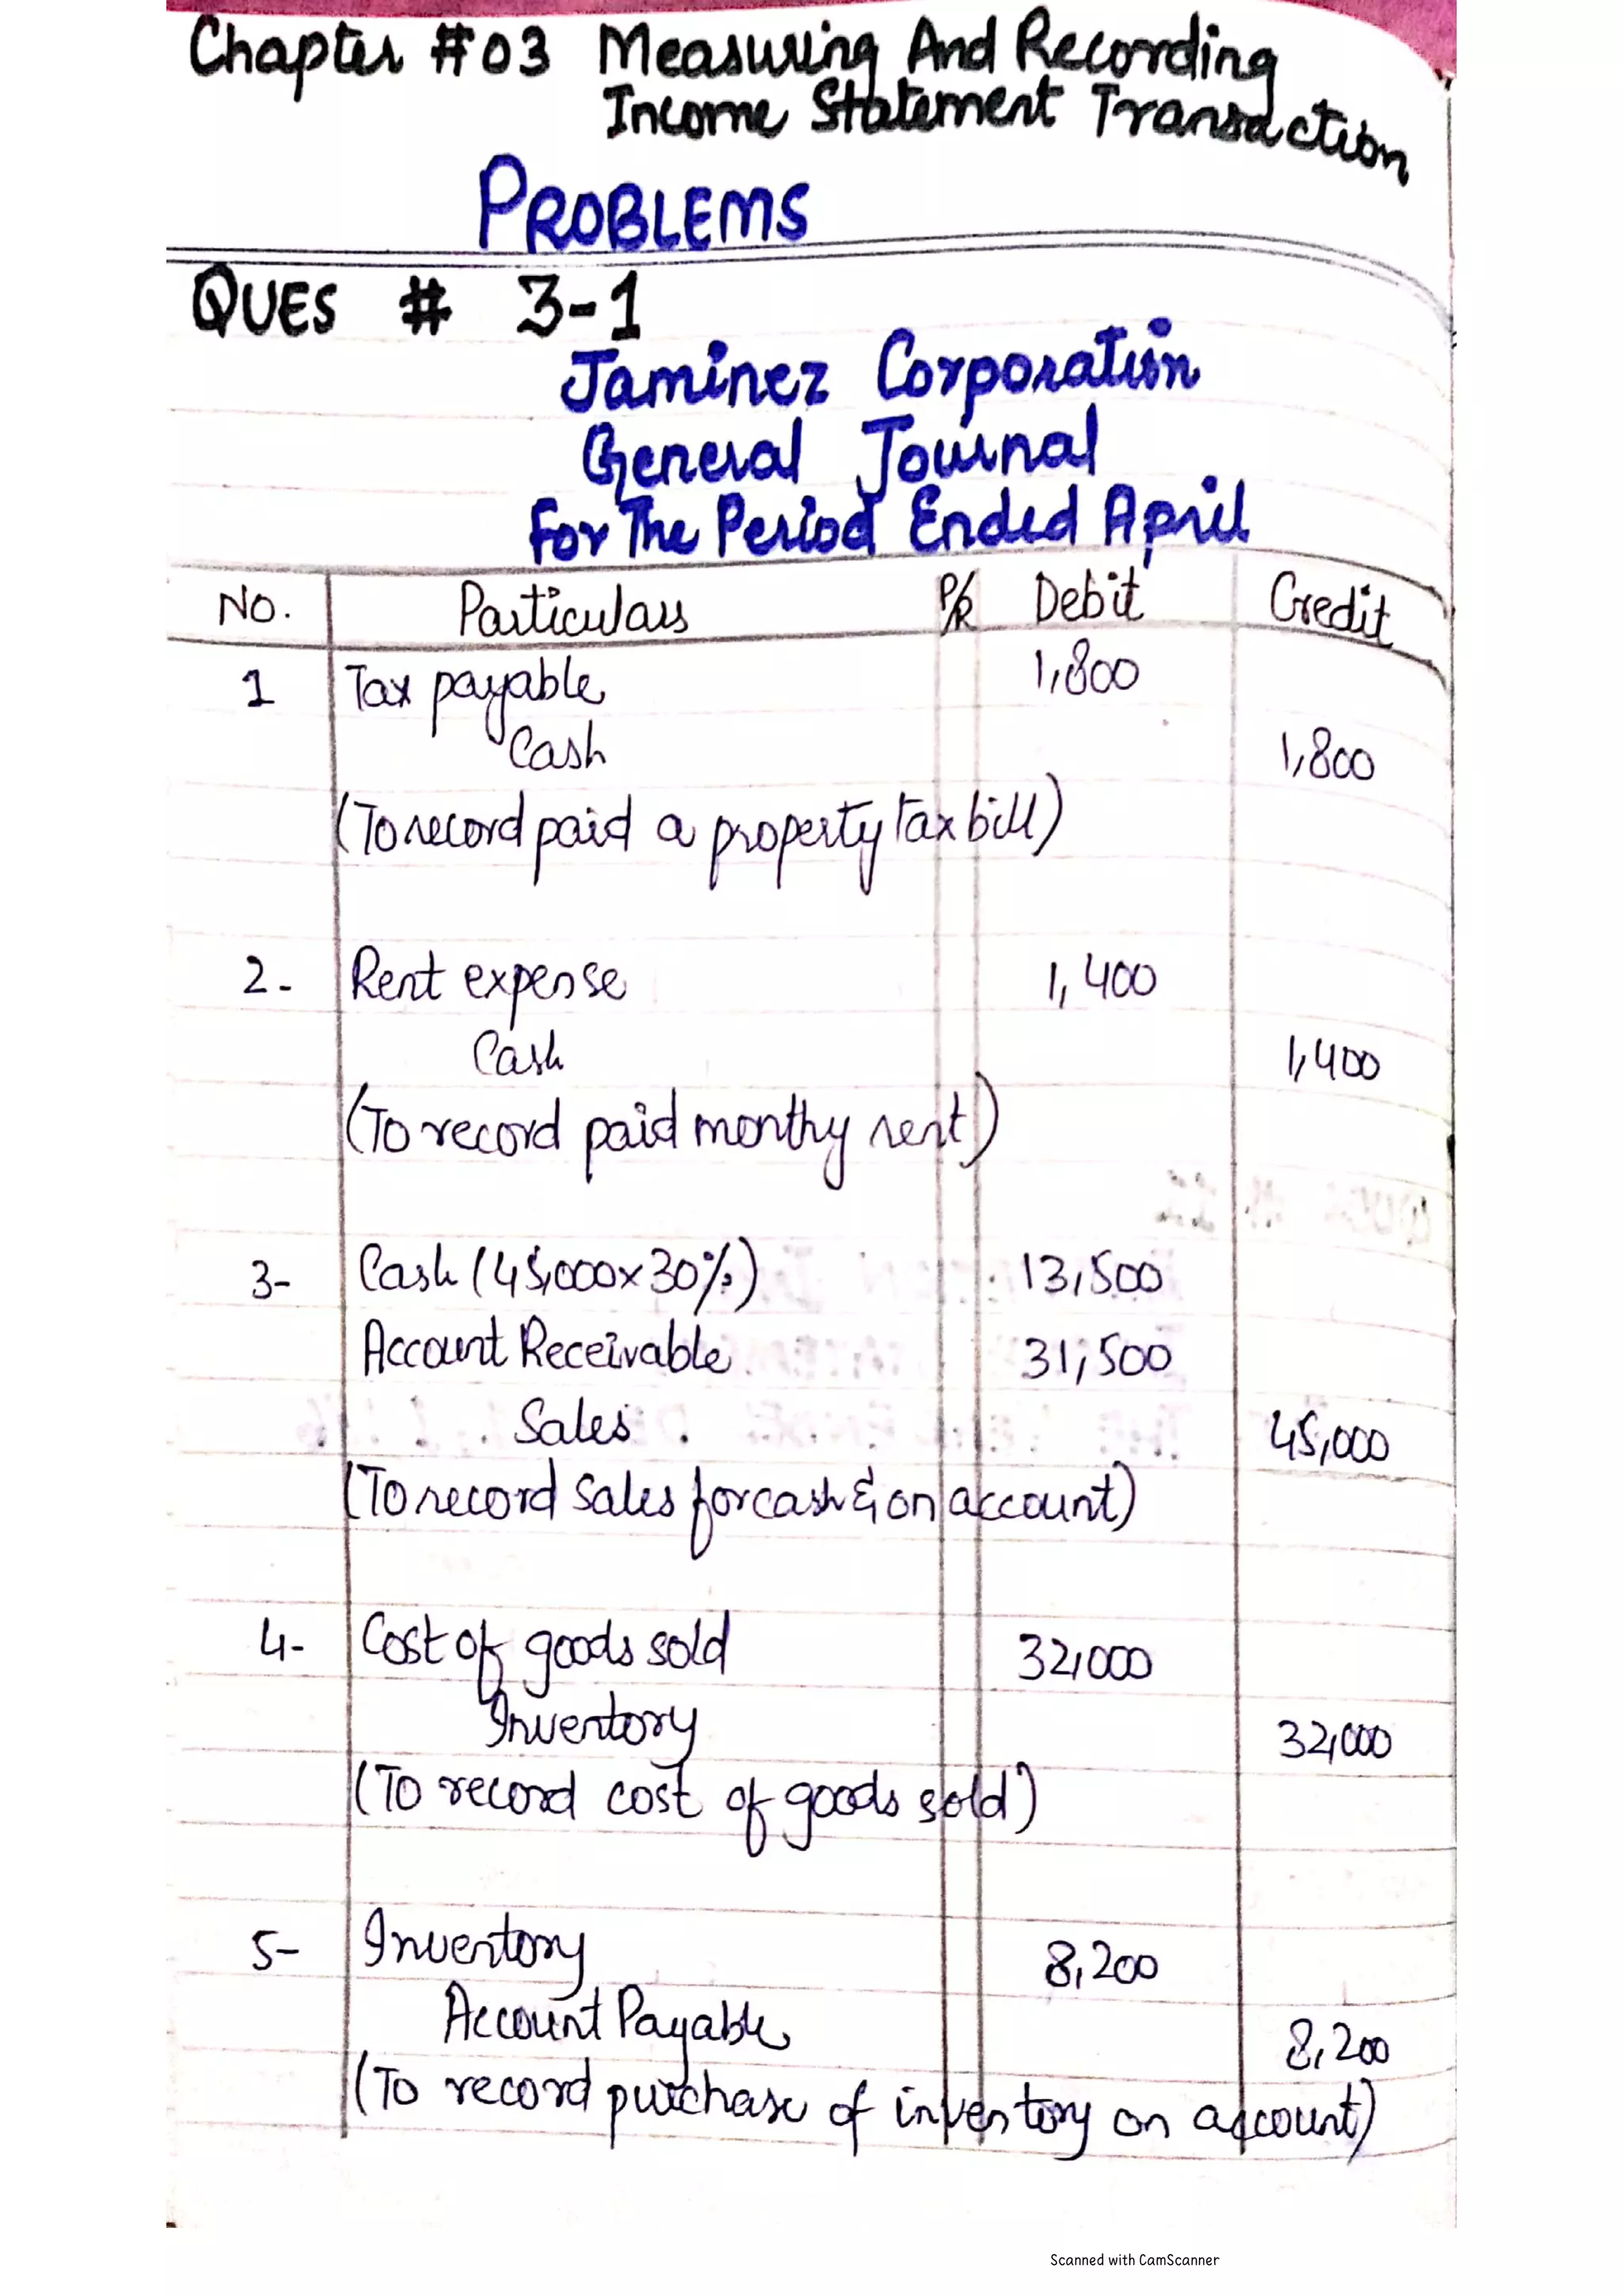 Chapter #03 Measuring And Recording
Income Statement Transaction
PROBLEMS
QUES # 3-1
Jaminez Corporation
General Journal
For The Period Ended April
No. Particulars P/R Debit Credit
1 Tax payable 1,800
Cash 1,800
(To record paid a property tax bill)
2- Rent expense 1,400
Cash 1,400
(To record paid monthy rent)
3- Cash (45,000x30%) 13,500
Account Receivable 31,500
Sales 45,000
(To record sales for cash & on account)
4- Cost of goods sold 32,000
Inventory 32,000
(To record cost of goods sold)
5- Inventory 8,200
Account Payable 8,200
(To record purchase of inventory on account)
Scanned with CamScanner